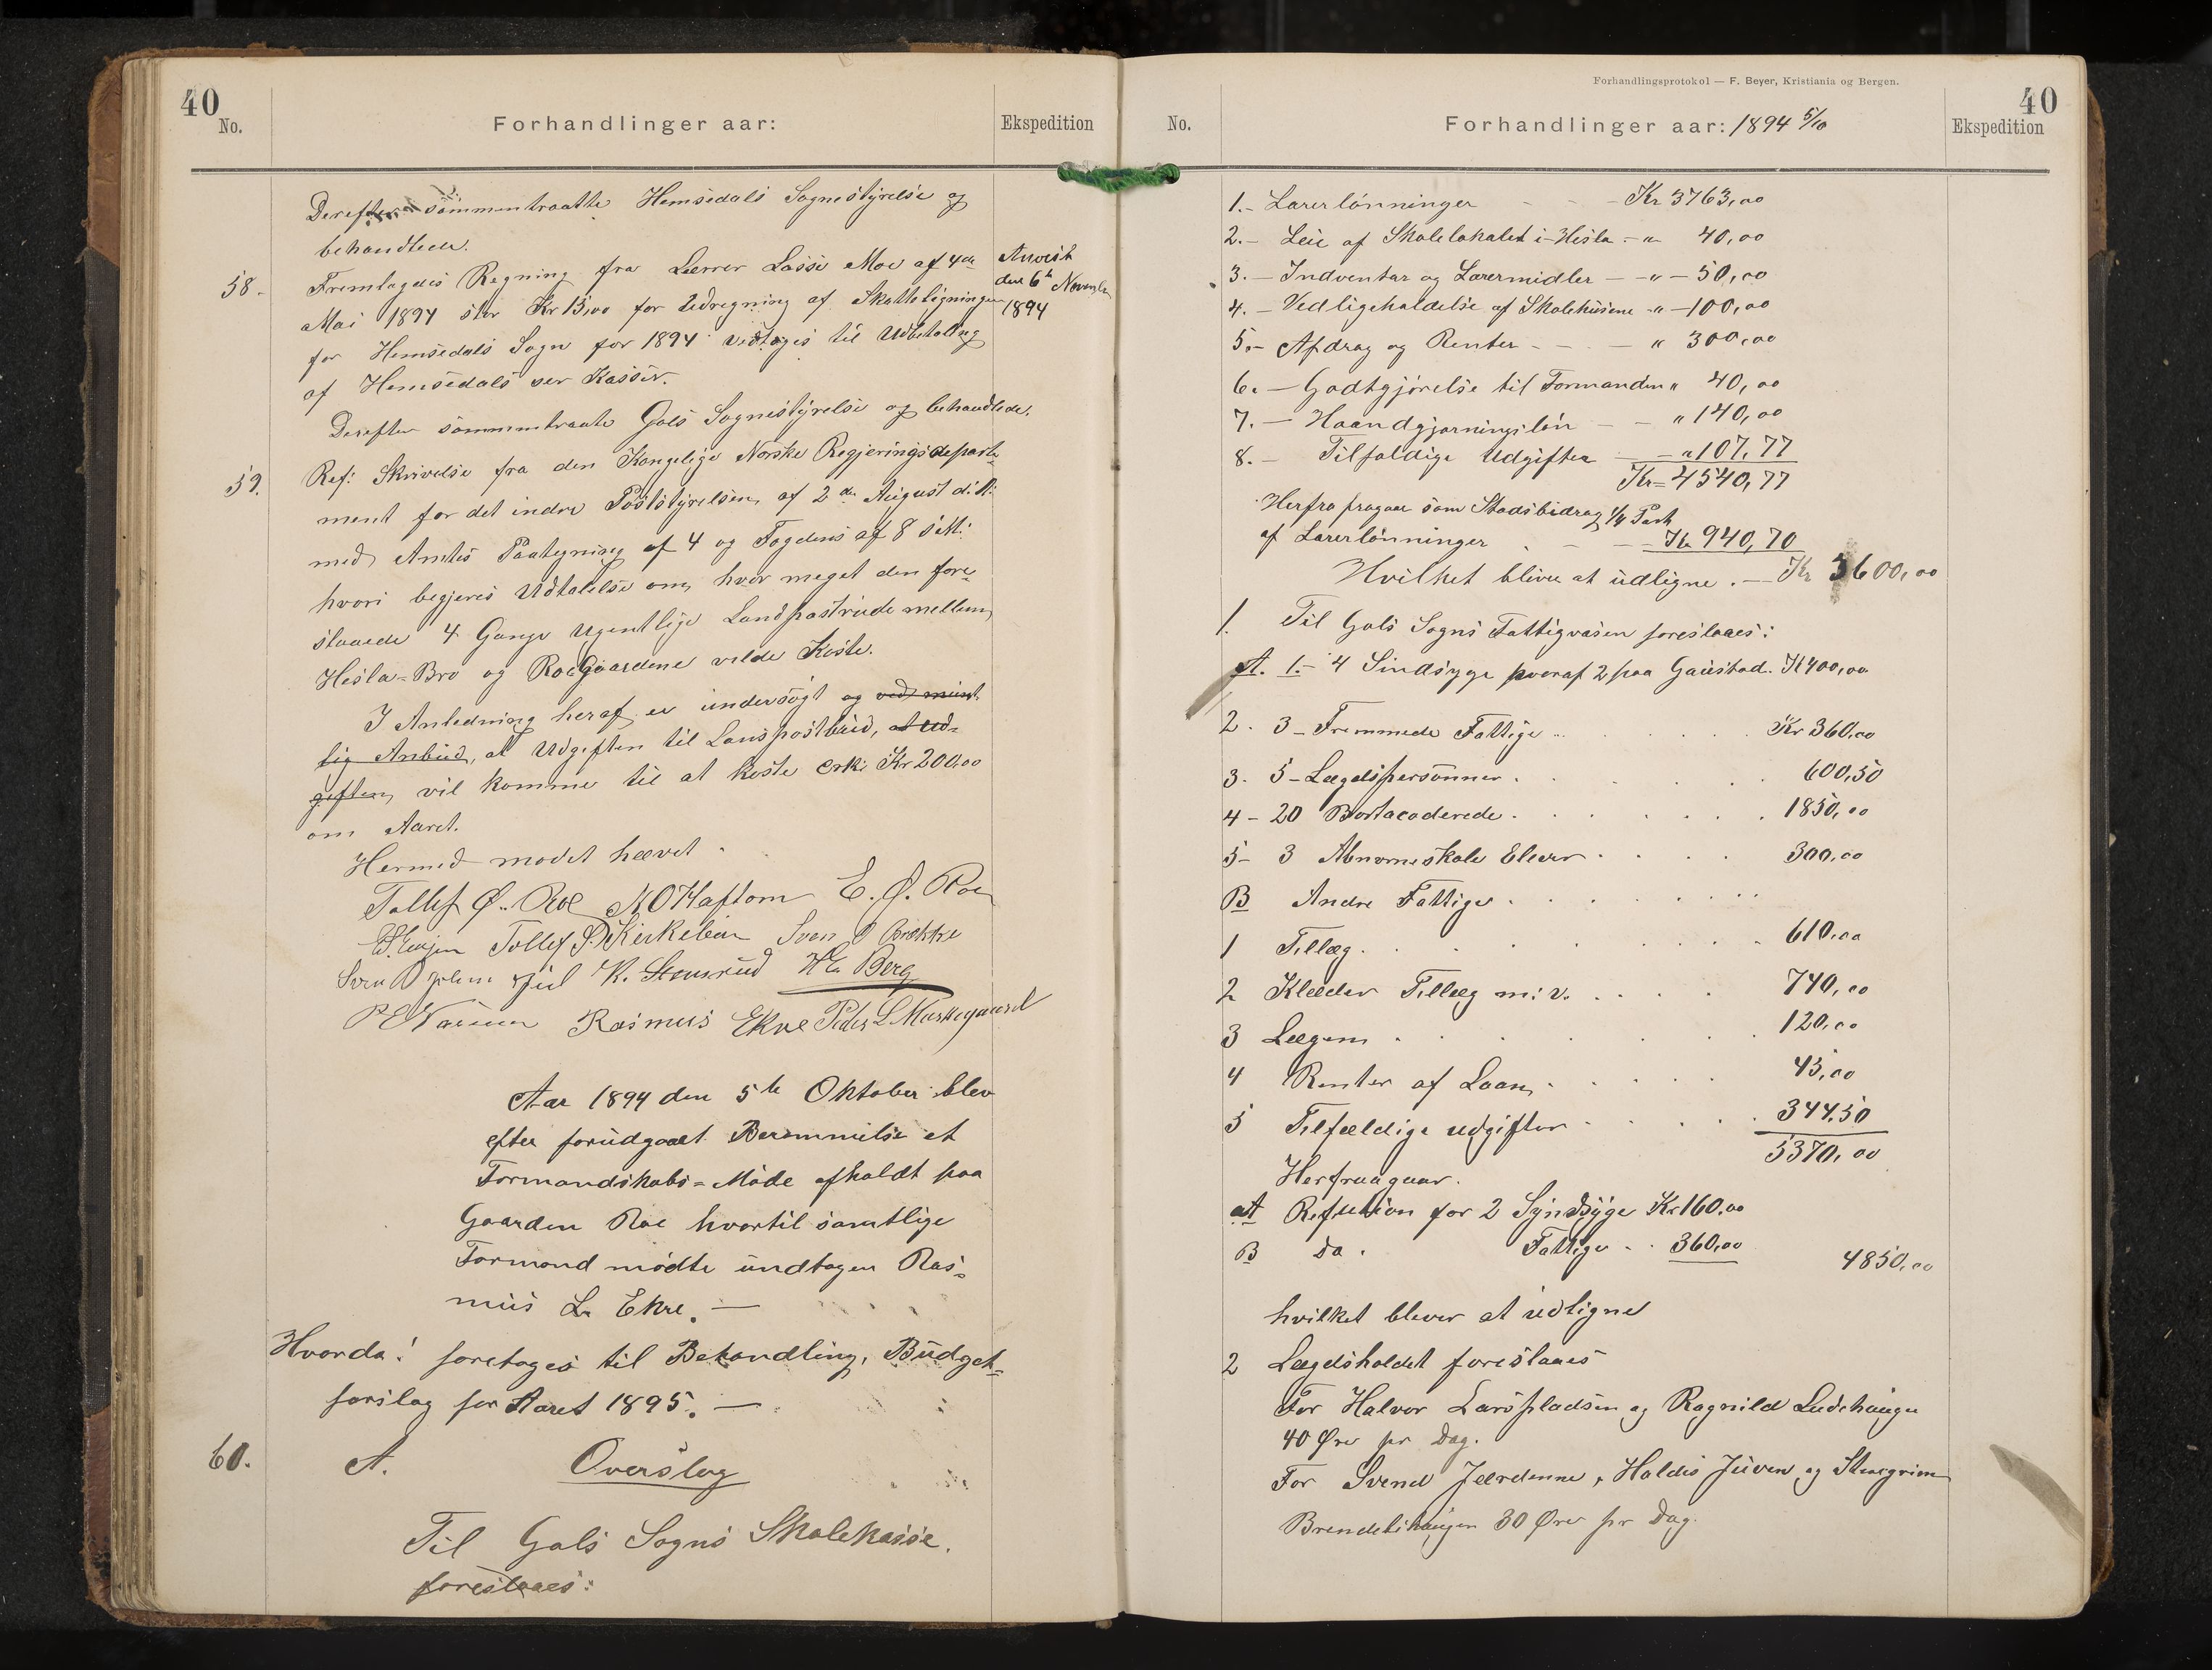 40
No.
Forhandlinger aar:
Ekspedition
Derefter sammentraatte Hemsedals Sognestyrelse og
behandlede.
58.
Fremlagdes Regning fra Lærer Lasse Moe af 4de
Mai 1894 stor Kr 15,00 for Udregning af Skatteligningen
for Hemsedals Sogn for 1894 vedtages til Udbetaling
af Hemsedals Kasser.
Anvist
den 6te November
1894
Derefter sammentraate Gols Sognestyrelse og behandlede.
59.
Ref: Skrivelse fra den Kongelige Norske Regjeringsdeparte-
ment for det indre Poststyrelsen af 2de August d.A.
med Amtes Paategning af 4 og Fogdens af 8 s.M.
hvori begjeres Udtalelse om, hvor meget den fore-
slaaede 4 Gange Ugentlige Landpostrude mellem
Hesla-Bro og Roegaardene vilde Koste.
I Anledning heraf er undersøgt og ved mind-
lig Anbud, at Udgiften til Landpostbud, at Ud-
giften vil komme til at koste cirka Kr 200,00
om Aaret.
Hermed mødet hævet.
Tollef Ø. Roe N O Haftorn E. Ø. Roe
Tollef Kirkebøen Sven Brække
K. Stensrud H E Berg
Rasmus Ekre Peder L Markegaard
Aar 1894 den 5te Oktober blev
efter forudgaaet Berammelse et
Formandskabs-Møde afholdt paa
Gaarden Roe hvortil samtlige
Formænd mødte undtagen Ras-
mus L. Ekre. —
Hvorda! foretoges til Behandling, Budget-
forslag for Aaret 1895. —
60.
A. Overslag
Til Gols Sogns Skolekasse.
foreslaaes:
Forhandlingsprotokol — F. Beyer, Kristiania og Bergen.
40
No.
Forhandlinger aar: 1894 5/10
Ekspedition
1.- Lærerlønninger - - - Kr 3763,00
2.- Leie af Skolelokalet i Hesla - " 40,00
3.- Indventar og Lærermidler - - " - 50,00
4.- Vedligeholdelse af Skolehusene - " - 100,00
5.- Afdrag og Renter - - - " 300,00
6.- Godtgjørelse til Formanden " 40,00
7.- Haandgjerningsløn - - " 140,00
8.- Tilfældige Udgifter - - " 107,77
Kr= 4540,77
Herfra fragaar som Stadsbidrag 1/4 Part
af Lærerlønninger - - - Kr 940,70
Hvilket bliver at udligne. — Kr 3600,00
1. Til Gols Sogns Fattigvæsen foreslaaes:
A. 1.- 4 Sindsyge hvoraf 2 paa Gaustad. Kr 400,00
2. 3 - Fremmede Fattige Kr 360,00
3. 5 - Lægdspersonner 600,50
4 - 20 Bortacoderede 1850,00
5 - 3 Abnormeskole Elever 300,00
B Andre Fattige
1 Tillæg 610,00
2 Klæder Tillæg m. v. 740,00
3 Lægem 120,00
4 Renter af Laan 45,00
5 Tilfældige udgifter 344,50
5370,00
Herfraagaar.
A Refusion for 2 Syndsyge Kr 160,00
B Do. Fattige 360,00 4850,00
hvilket blever at udligne
2 Lægdsholdet foreslaaes
For Halvor Larspladsen og Ragnild
40 Øre pr Dag.
For Svend Jærdenne, Haldis Juven og Stengrim
Brendehaugen 30 Øre pr Dag.